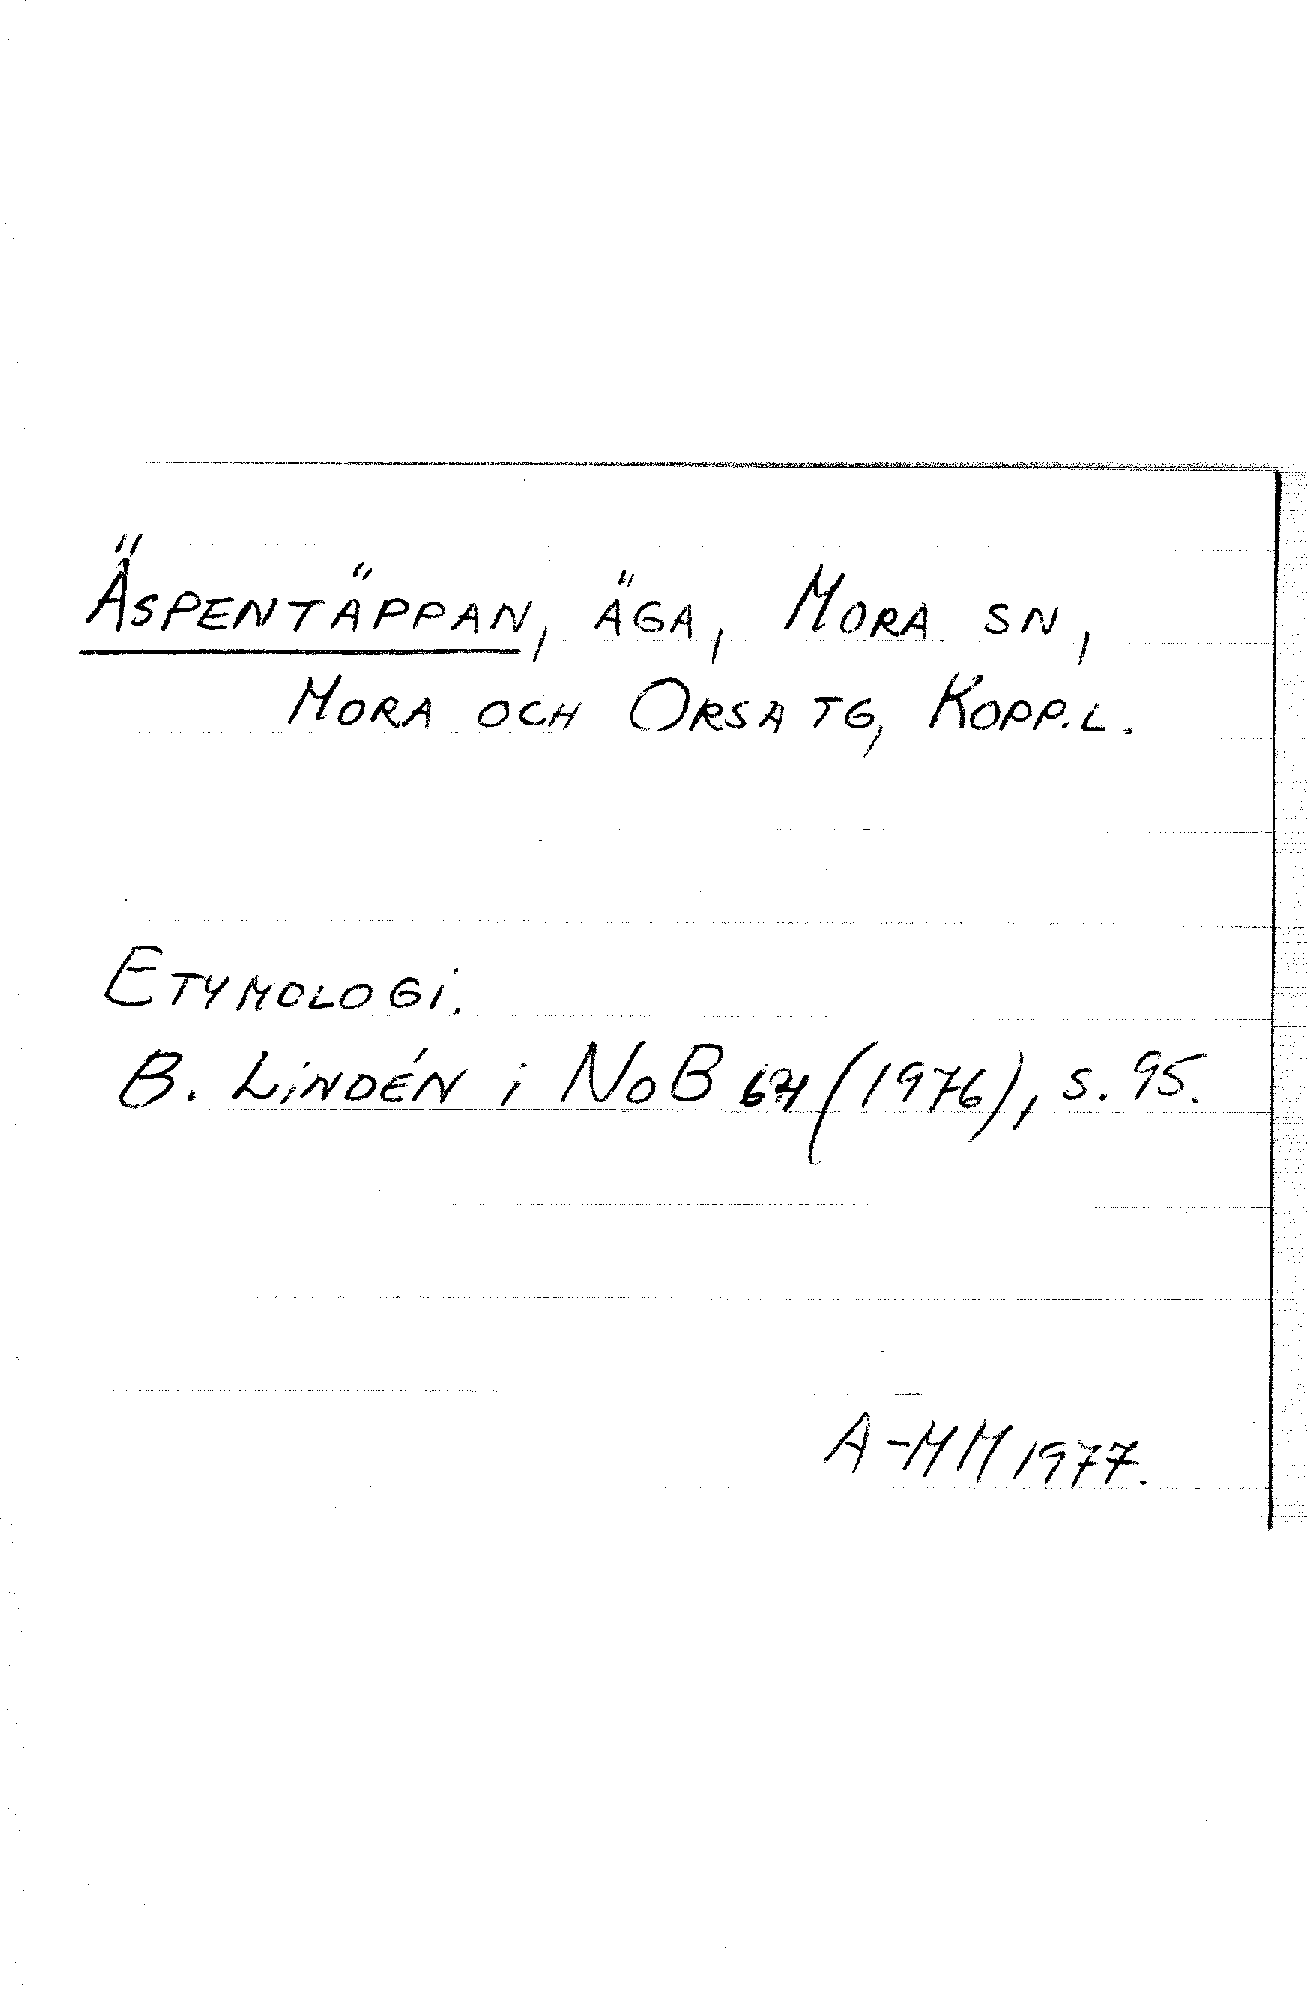 ÄSPENTÄPPAN, ÄGA, MORA SN,
MORA OCH ORSA TG, KOPP.L.
ETYMOLOGI.
B. LINDÉN i NoB 64 (1976), S. 95.
A-MM 1977.